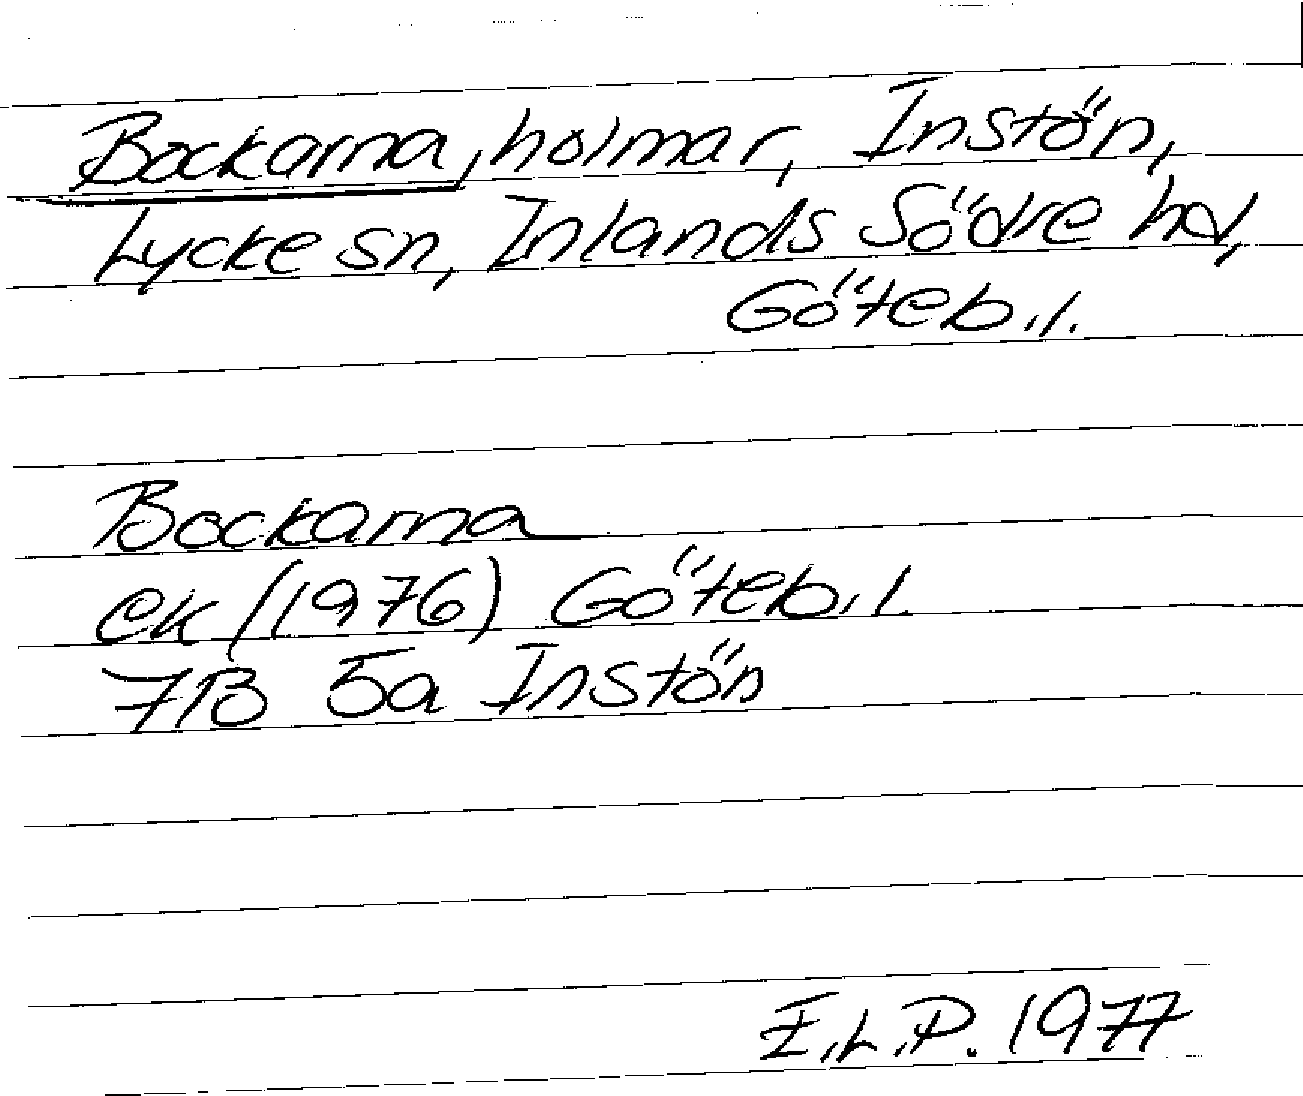 Bockarna, holmar, Instön,
Lycke sn, Inlands Södre hd,
Göteb.l.
Bockarna
ek (1976) Göteb.l.
7B 5a Instön
I.L.P. 1977